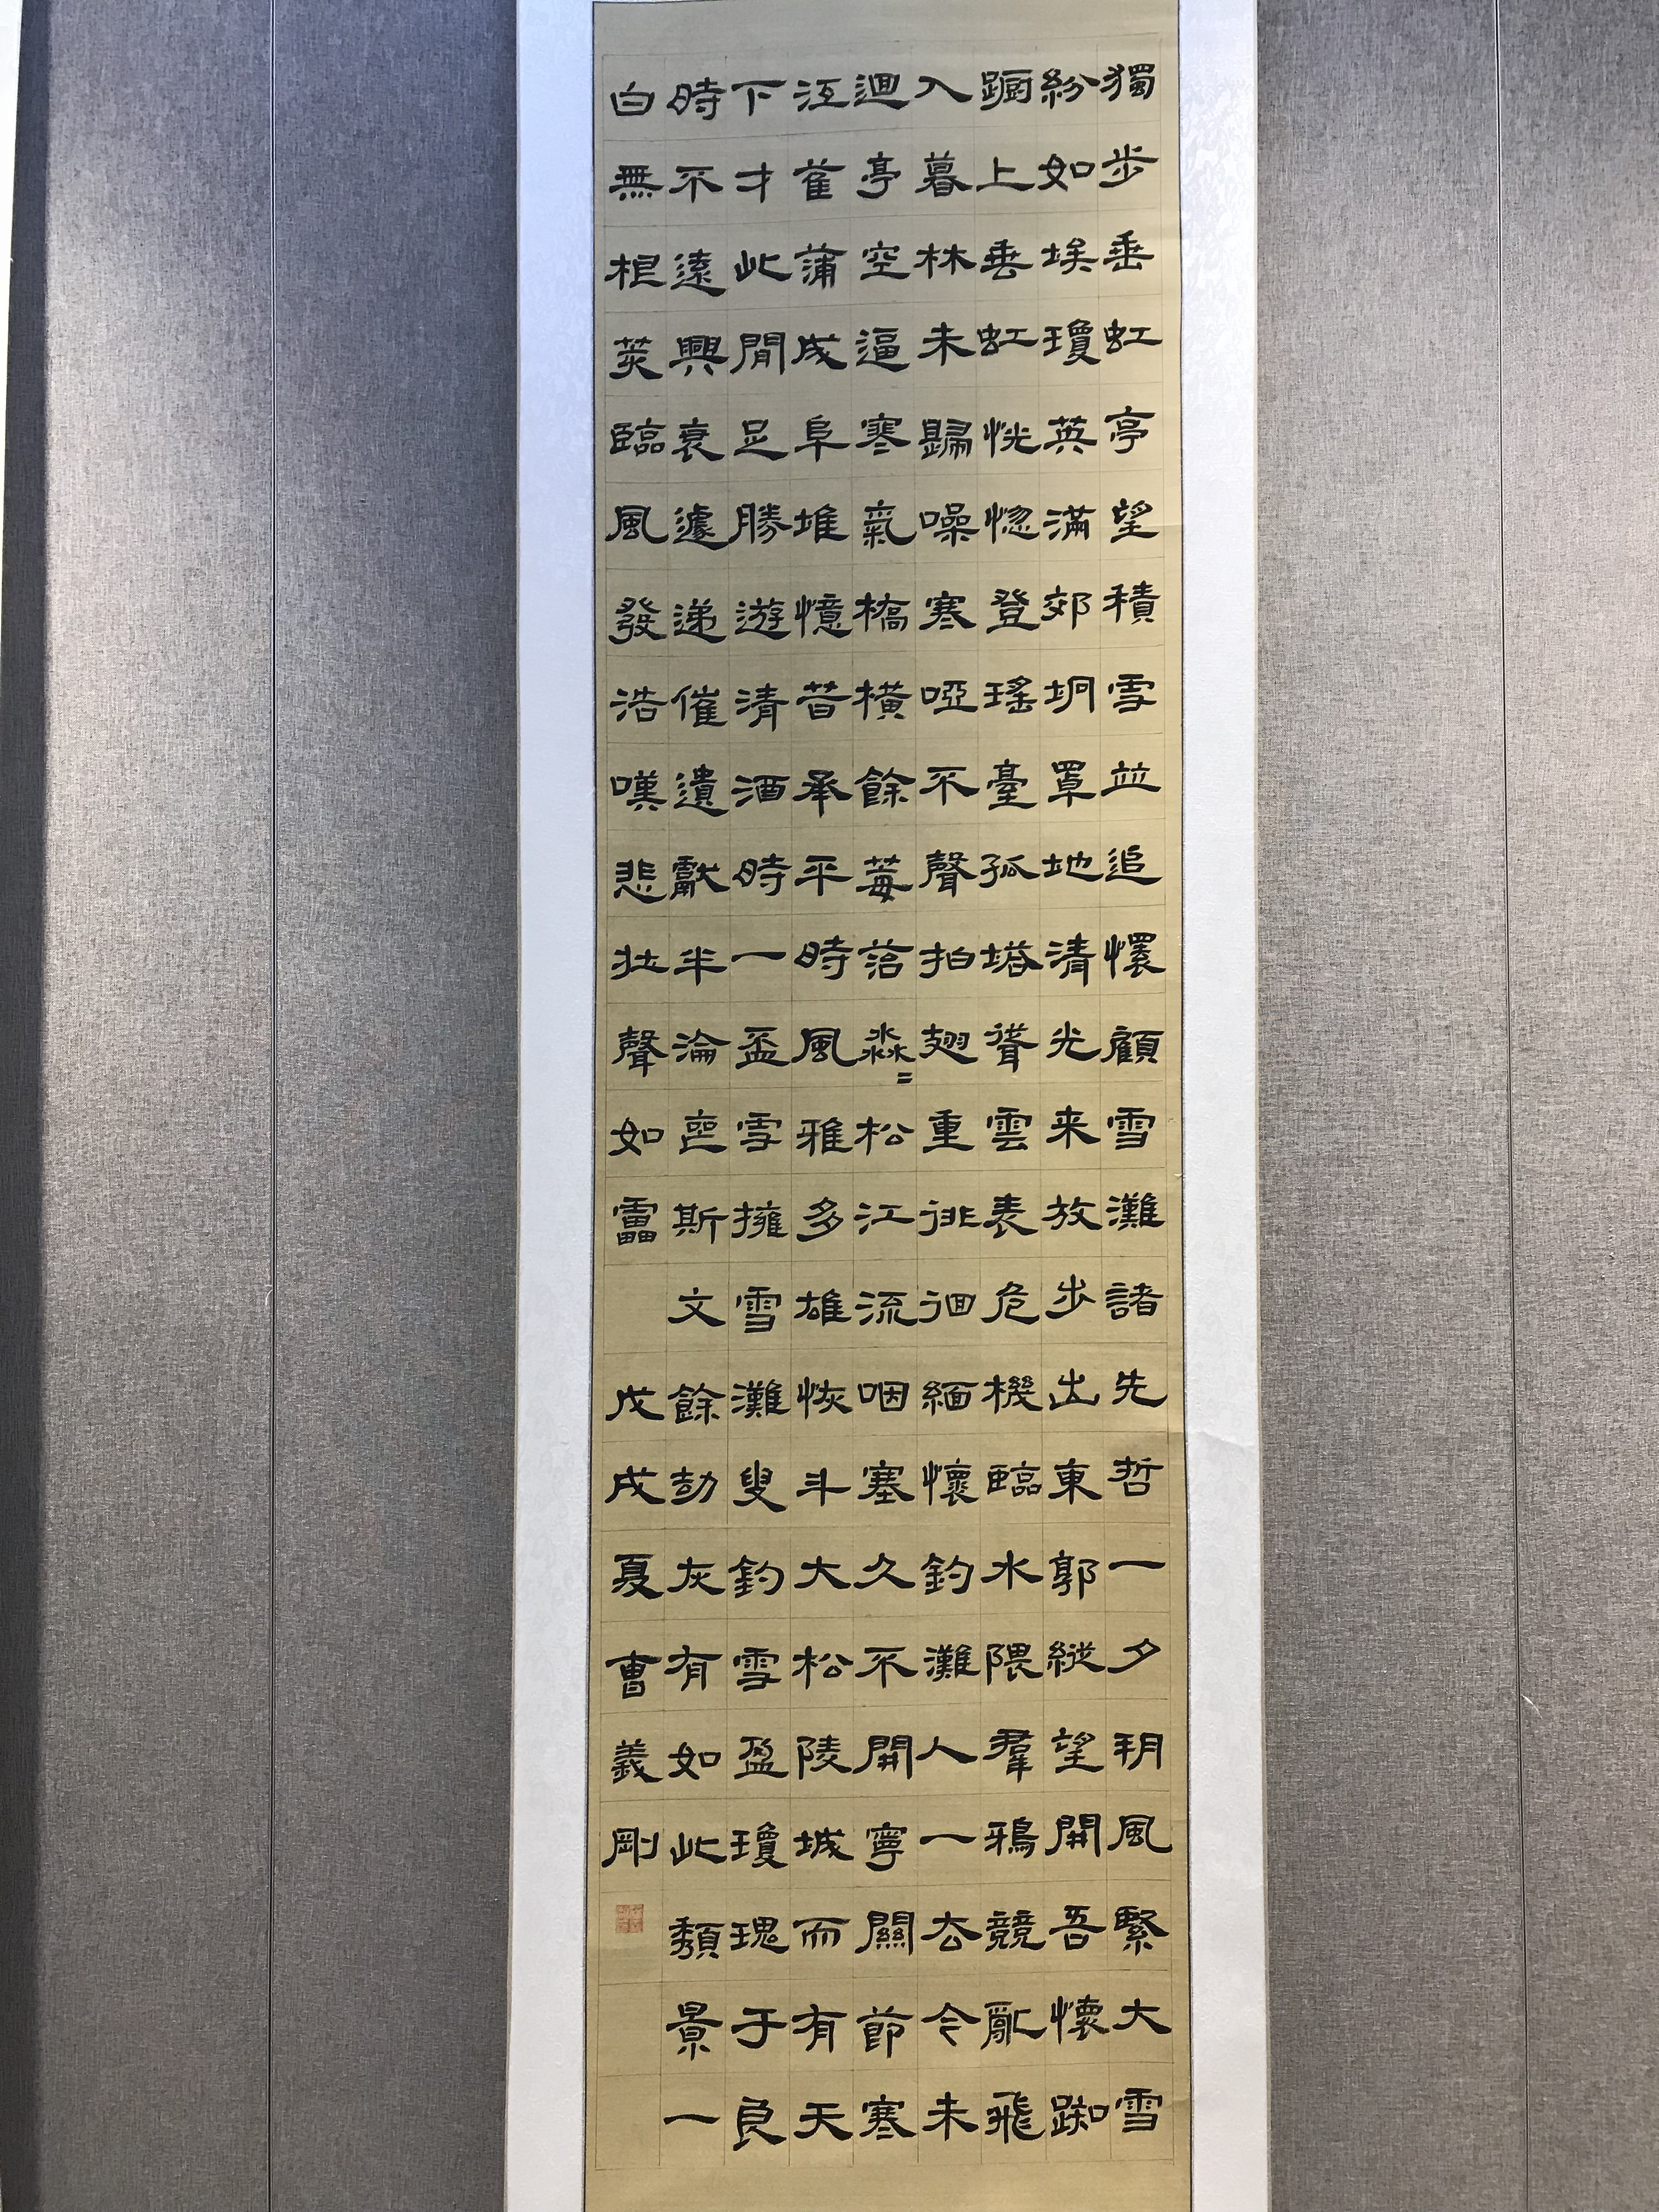 獨步垂虹亭望積雪並追懷顧雪灘諸先哲一夕朔風緊大雪
紛如埃瓊英滿郊坰罩地清光来放步出東郭縱望開吾懷踟
躕上垂虹恍惚登瑤臺孤塔聳雲表危機臨水隈羣鴉競亂飛
入暮林未歸噪寒啞不聲拍翅重徘徊緬懷釣灘人一去今未
迴亭空逼寒氣橋橫餘莓菭淼〻松江流咽塞久不開寧關節寒
沍萑蒲成阜堆憶昔承平時風雅多雄恢斗大松陵城而有天
下才此間足勝遊清酒時一盃雪擁雪灘叟釣雪盈瓊瑰于良
時不遠興衰遽递催遺獻半淪喪斯文餘劫灰有如此類景一
白無根荄臨風發浩嘆悲壯聲如靁 戊戌夏曹義剛